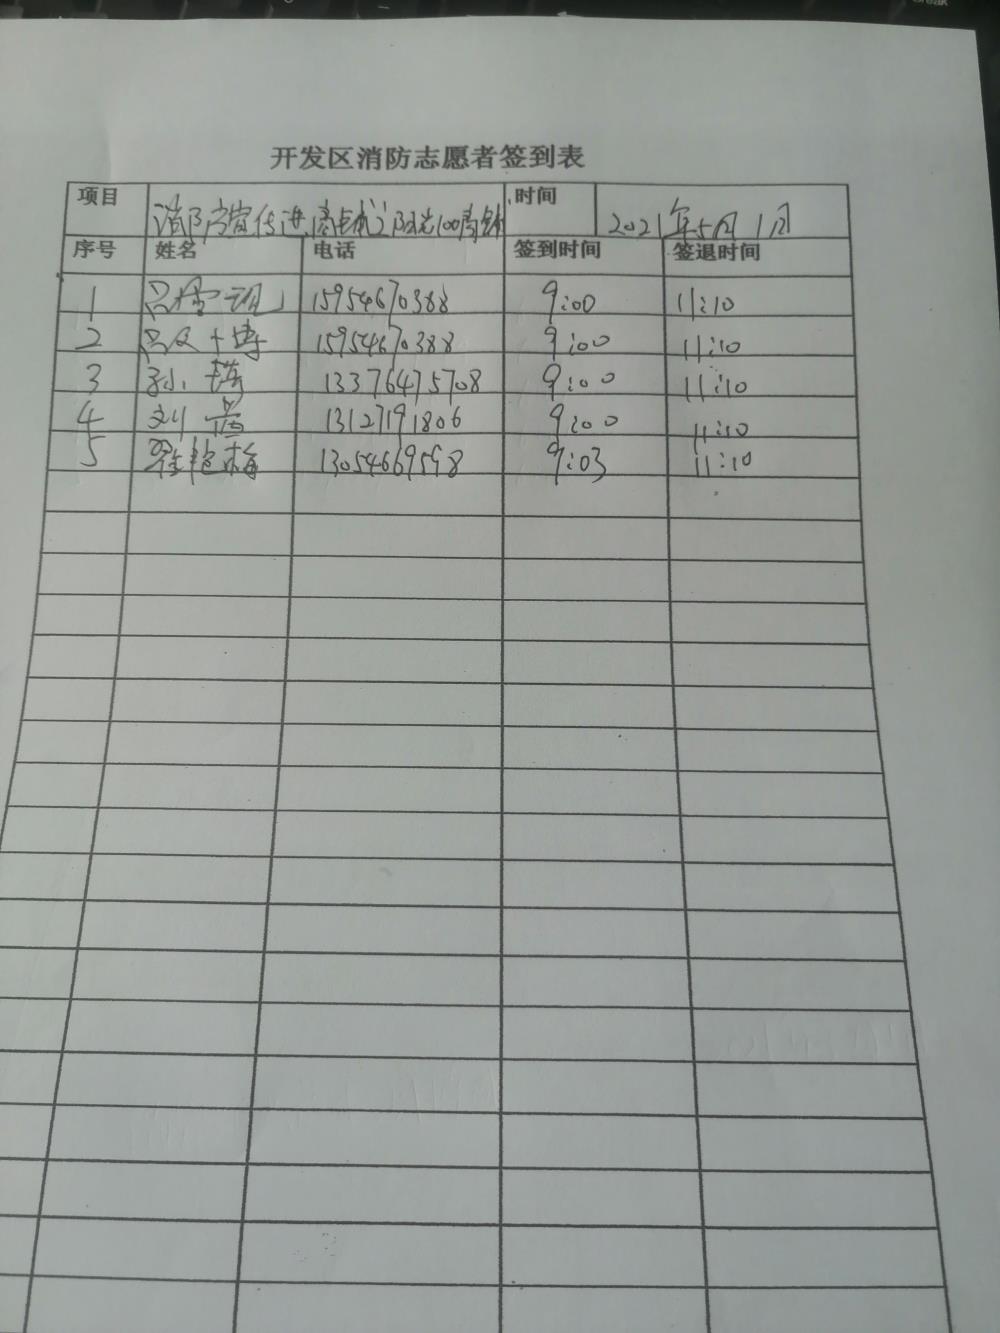 开发区消防志愿者签到表
项目 消防宣传进 阳光100 时间 2021年5月1日
序号 姓名 电话 签到时间 签退时间
1 吕雪 15954670388 9:00 11:10
2 15954670388 9:00 11:10
3 孙 13376475708 9:00 11:10
4 刘 13127191806 9:00 11:10
5 翟艳梅 13054669598 9:03 11:10